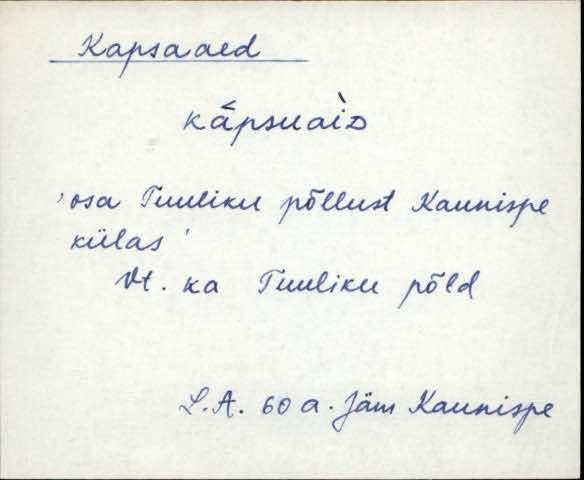 Kapsaaed
kápsuàiᴅ
'osa Tuuliku põllust Kaunispe
külas'
Vt. ka Tuuliku põld
L.A. 60 a. Jäm Kaunispe